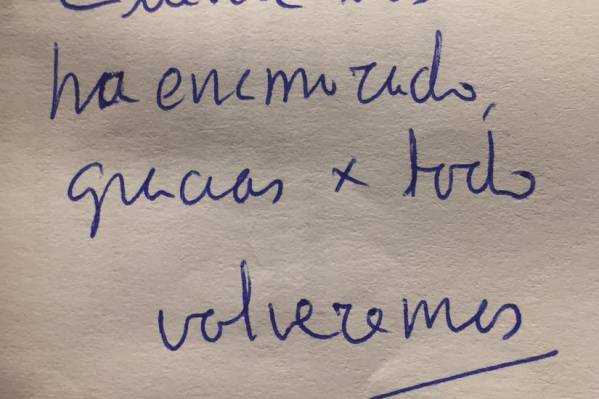 ha enamorado,
gracias x todo
volveremos